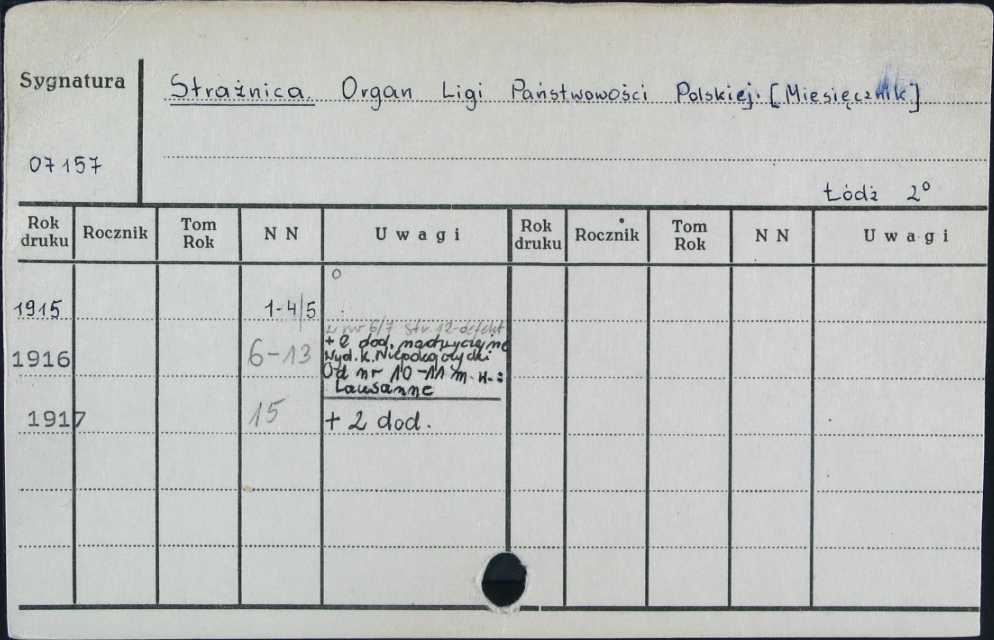 Sygnatura
Strażnica. Organ Ligi Państwowości Polskiej. [Miesięcznik]
07157
Łódź 2°
Rok druku Rocznik Tom Rok NN Uwagi Rok druku Rocznik Tom Rok NN Uwagi
1915 1-4/5
w nr 6/7 str. 12-defekt
1916 6-13 + 2 dod. nadzwyczajne
Wyd. K. Niepodległości
Od nr 10-11 m. w.:
Lausanne
1917 15 + 2 dod.